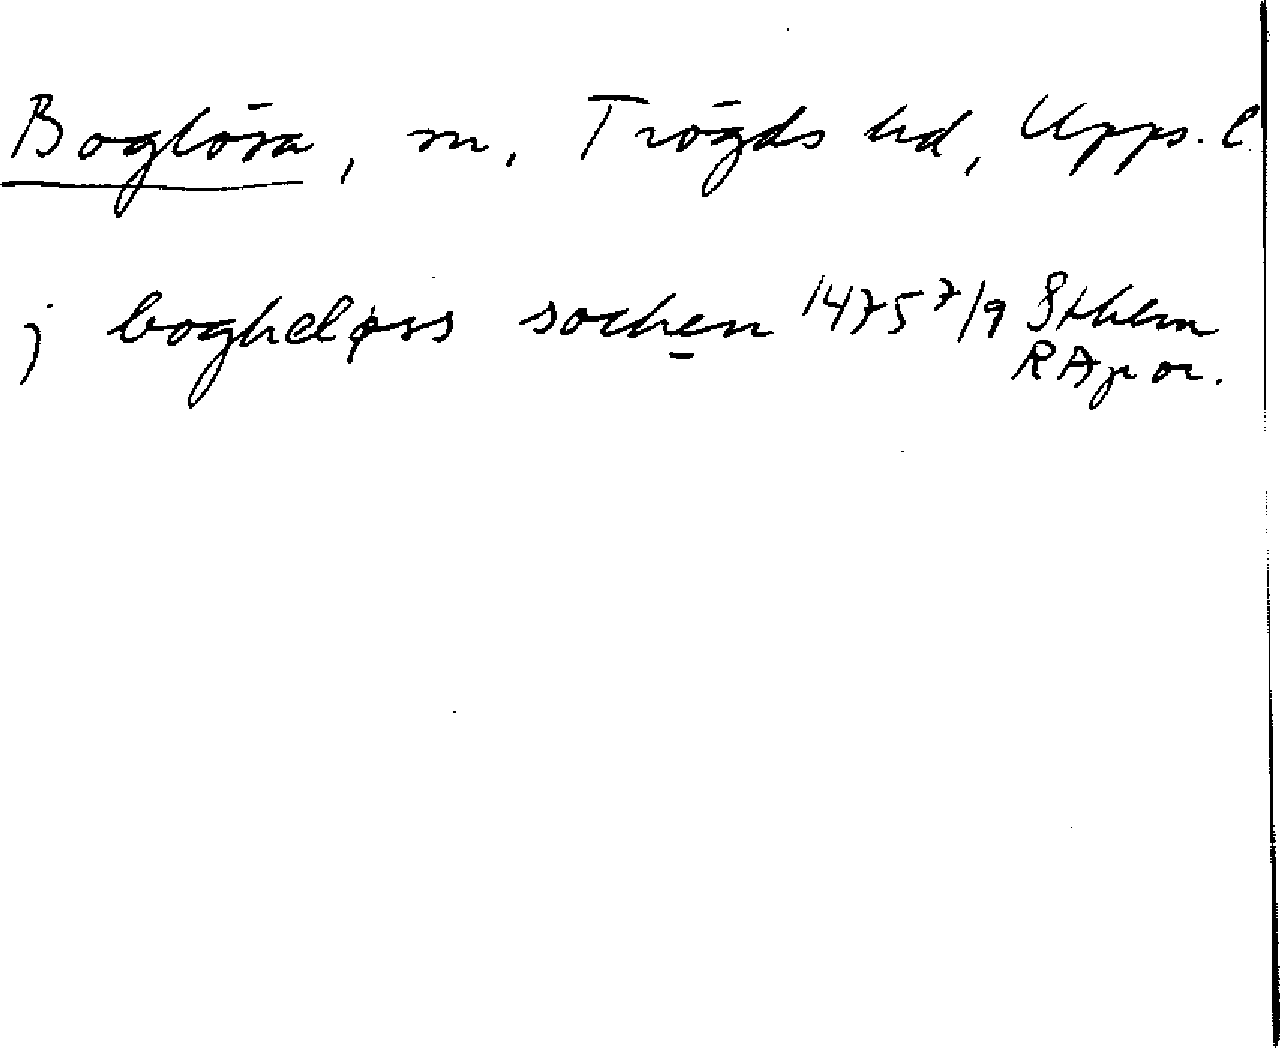 Boglösa, sn, Trögds hd, Upps. l.
j bogheløss sochen 1475 7/9 Sthlm
RAp or.